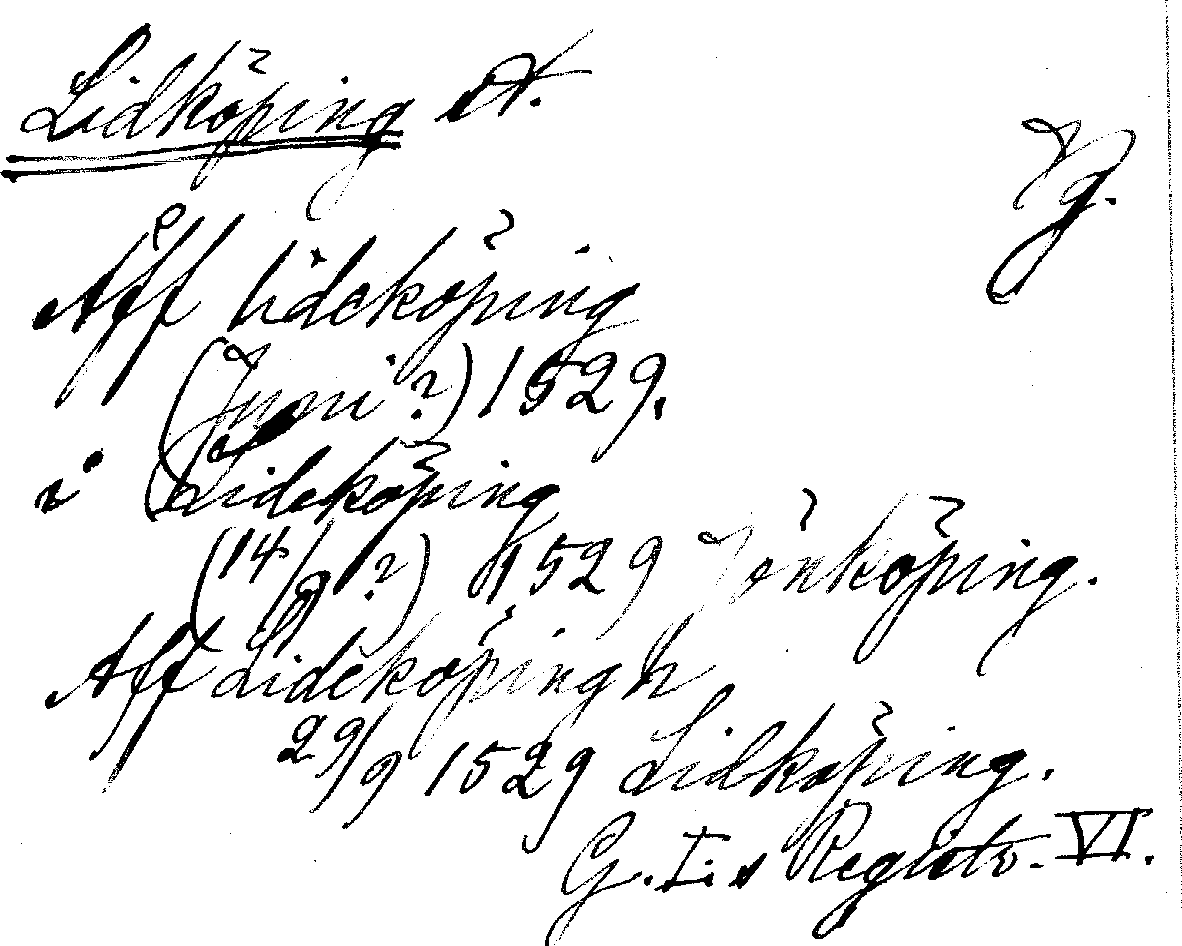 Lidköping st.
Vg.
Åff lideköping
(Juni?) 1529.
i Lideköping
(14/9?) 1529 Jönköping.
Aff Lideköpingh
29/9 1529 Lidköping.
G. I:s Registr. VI.